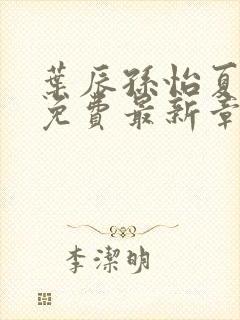 葉辰孫怡夏
免費最新章
李潔明